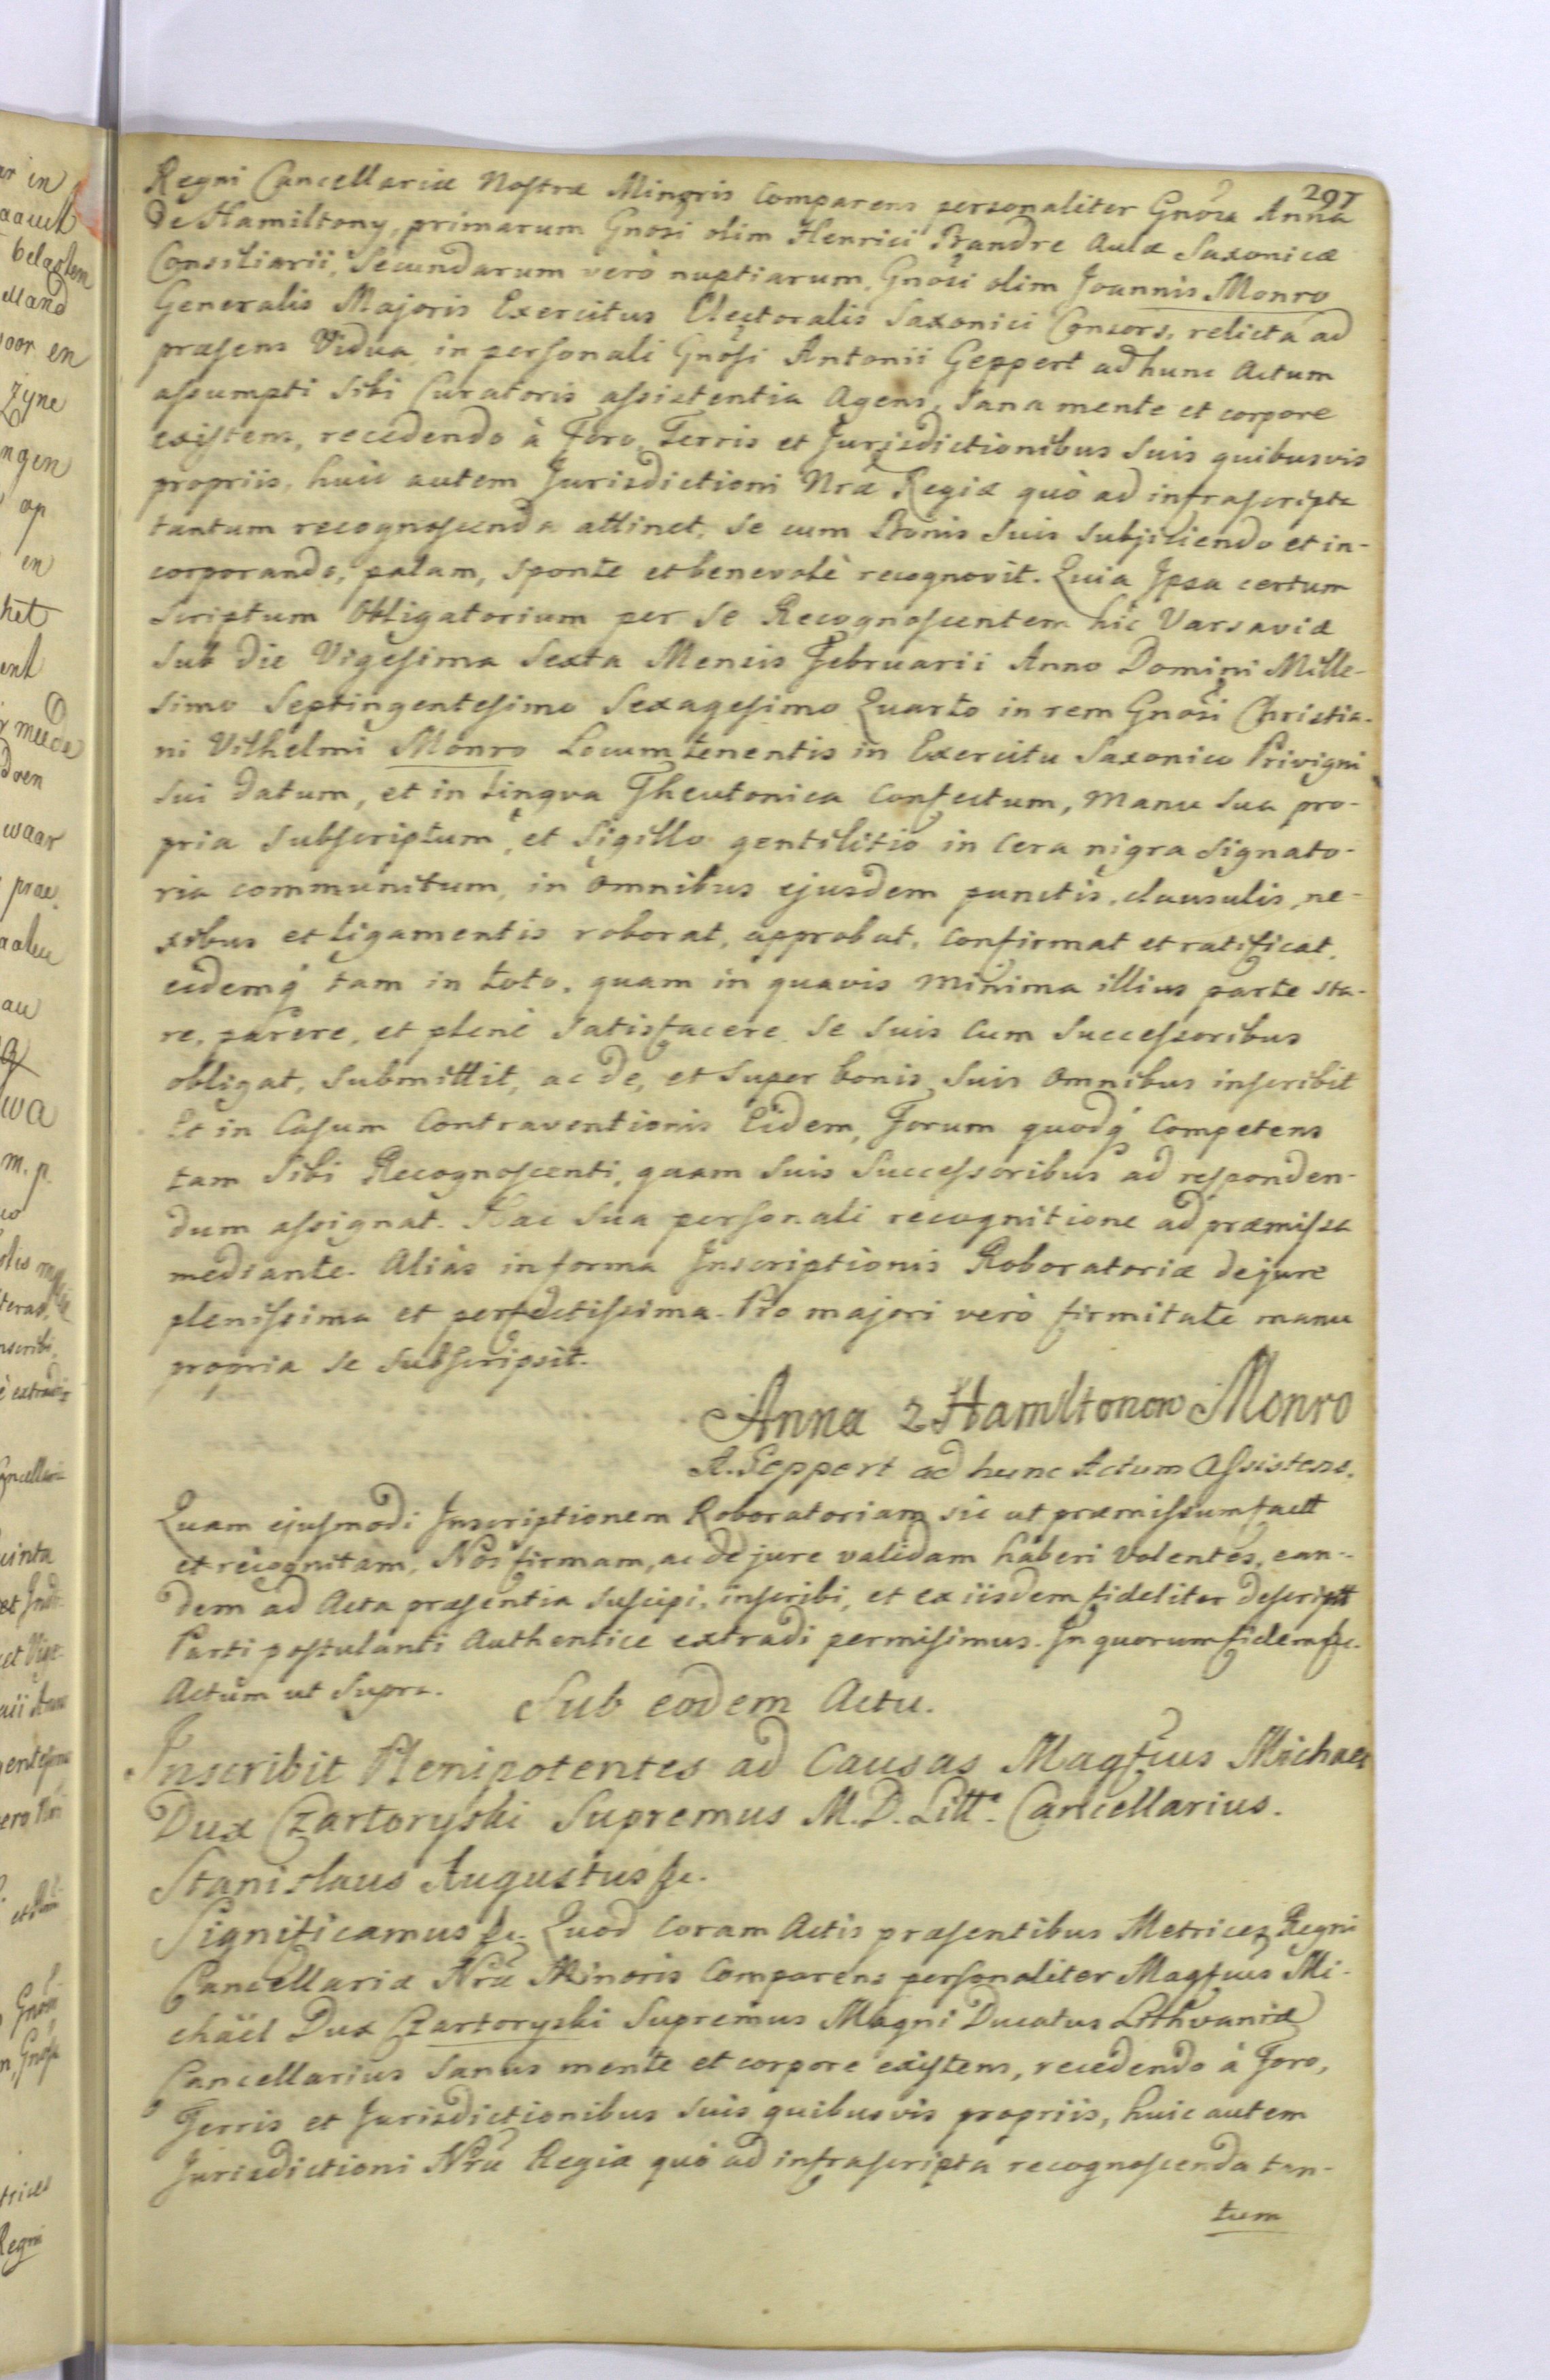 297
Regni Cancellariæ Nostræ Minoris Comparens personaliter Gnõsa Anna
de Hamiltony, primarum Gnosi olim Henrici Brandre Aulæ Saxonicæ
Consiliarii, Secundarum verò nuptiarum, Gnosi olim Joannis Monro
Generalis Majoris Exercitus Electoralis Saxonici Consors, relicta ad
præsens Vidua, in personali Gnosi Antonii Geppert ad hunc Actum
assumpti Sibi Curatoris assistentia Agens, Sana mente et corpore
existens, recedendo à Foro, Terris et Jurisdictionibus Suis quibusvis
propriis, huic autem Jurisdictioni Nræ Regiæ quò ad infrascripta
tantum recognoscenda attinet, Se cum Bonis Suis Subjiciendo et in-
corporando, palam, Sponte et benevolè recognovit. Quia Ipsa certum
Scriptum Obligatorium per Se Recognoscentem hic Varsaviæ
Sub die Vigesima Sexta Mensis Februarii Anno Domini Mille-
simo Septingentesimo Sexagesimo Quarto in rem Gnosi Christia-
ni Vilhelmi Monro Locumtenentis in Exercitu Saxonico Privigni
Sui datum, et in Lingva Theutonica Confectum, manu Sua pro-
pria Subscriptum, et Sigillo gentilitio in Cera nigra Signato-
ria communitum, in omnibus ejusdem punctis, clausulis, ne-
xibus et ligamentis roborat, approbat, Confirmat et ratificat,
eidemq́ tam in toto, quam in quavis minima illius parte sta-
re, parere, et plenè Satisfacere Se Suis Cum Successoribus
obligat, Submittit, ac de, et Super bonis Suis omnibus inscribit
Et in Casum Contraventionis Eidem, Forum quodq́ Competens
tam Sibi Recognoscenti, quam Suis Successoribus ad responden-
dum assignat. Hac Sua personali recognitione ad præmissa
mediante. Aliàs in forma Inscriptionis Roboratoriæ de jure
plenissima et perfectissima. Pro majori verò firmitate manu
propria Se Subscripsit.
Anna z Hamiltonow Monro
A. Geppert ad hunc Actum Assistens.
Quam ejusmodi Inscriptionem Roboratoriam sic ut præmissum fact
et recognitam, Nos firmam, ac de jure validam haberi Volentes, ean-
dem ad Acta præsentia Suscipi, inscribi, et ex iisdem fideliter descript
Parti postulanti Authentice extradi permisimus. In quorum fidem &c.
Actum ut Supra.
Sub eodem Actu.
Inscribit Plenipotentes ad Causas Magfcus Michael
Dux Czartoryski Supremus M. D. Litt. Cancellarius.
Stanislaus Augustus &c.
Significamus &c. Quod Coram Actis præsentibus Metrices Regni
Cancellariæ Nræ Minoris Comparens personaliter Magfcus Mi-
chäel Dux Czartoryski Supremus Magni Ducatus Lithvaniæ
Cancellarius Sanus mente et corpore existens, recedendo à Foro,
Terris et Jurisdictionibus Suis quibusvis propriis, huic autem
Jurisdictioni Nræ Regiæ quò ad infrascripta recognoscenda tan-
tum